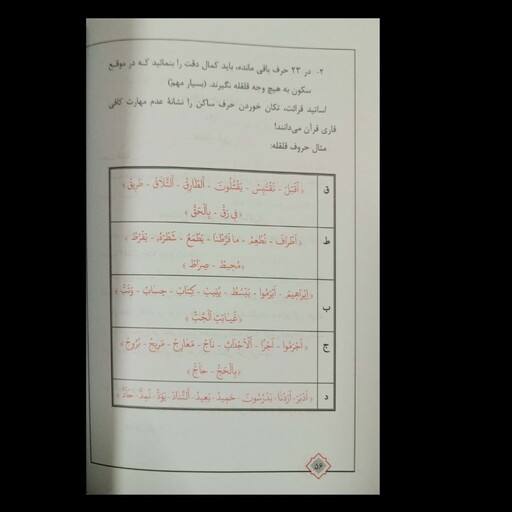 ۲. در ۲۳ حرف باقی مانده، باید کمال دقت را بنمائید که در موقع
سکون به هیچ وجه قلقله نگیرند. (بسیار مهم)
اساتید قرائت، تکان خوردن حرف ساکن را نشانهٔ عدم مهارت کافی
قاری قرآن می‌دانند!
مثال حروف قلقله:
ق
﴿ اَقْبَلَ - نَقْتَبِسْ - يَقْتُلُونَ - اَلطّارِقْ - اَلتَّلَاقْ - طَرِيقْ ﴾
﴿ فِي رَقّْ - بِالْحَقّْ ﴾
ط
﴿ اَطْرافَ - نُطْعِمُ - ما فَرَّطْنا - يَطْمَعُ - شَطْرَهُ - يَفْرُطَ ﴾
﴿ مُحِيطْ - صِرَاطْ ﴾
ب
﴿ اِبْرَاهِيمَ - اَبْرَمُوا - يَبْسُطُ - يُنِيبْ - كِتَابْ - حِسَابْ - وَتَبّْ ﴾
﴿ غَيَابَتِ الْجُبّْ ﴾
ج
﴿ اَجْرَمُوا - اَجْرًا - اَلْاَجْدَاثِ - - مَعَارِجْ - مَرِيجْ - بُرُوجْ ﴾
﴿ بِالْحَجّْ - حَاجّْ ﴾
د
﴿ اَدْبَرَ - اَرَدْنَا - يَدْرُسُونَ - حَمِيدْ - بَعِيدْ - اَلتَّنَادْ - يَوَدّْ - نُمِدّْ - حَادّْ ﴾